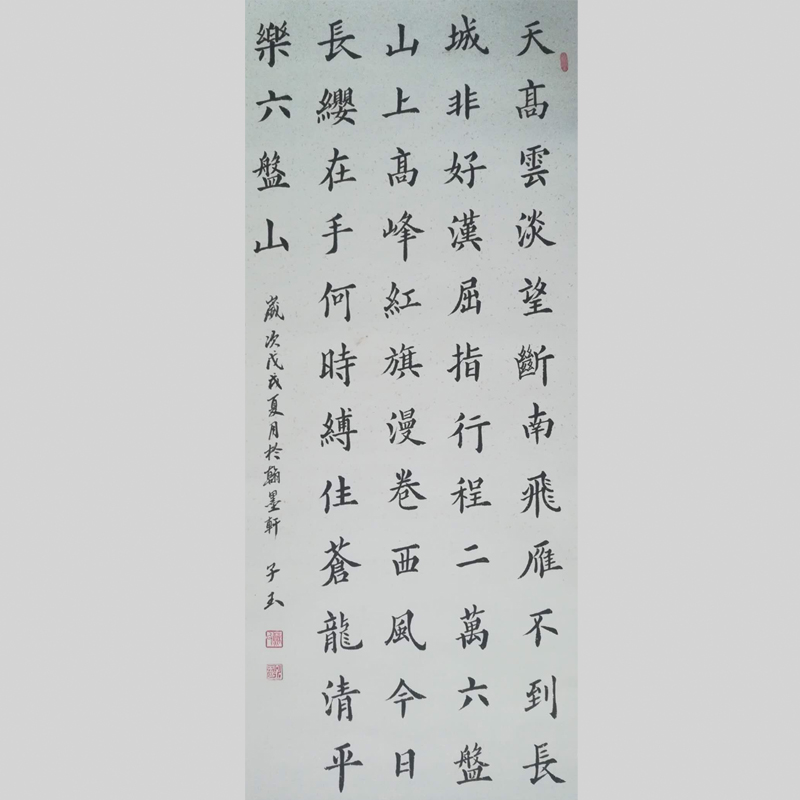 天高雲淡望斷南飛雁不到長
城非好漢屈指行程二萬六盤
山上高峰紅旗漫卷西風今日
長纓在手何時縛住蒼龍清平
樂六盤山
歲次戊戌夏月於翰墨軒 子玉